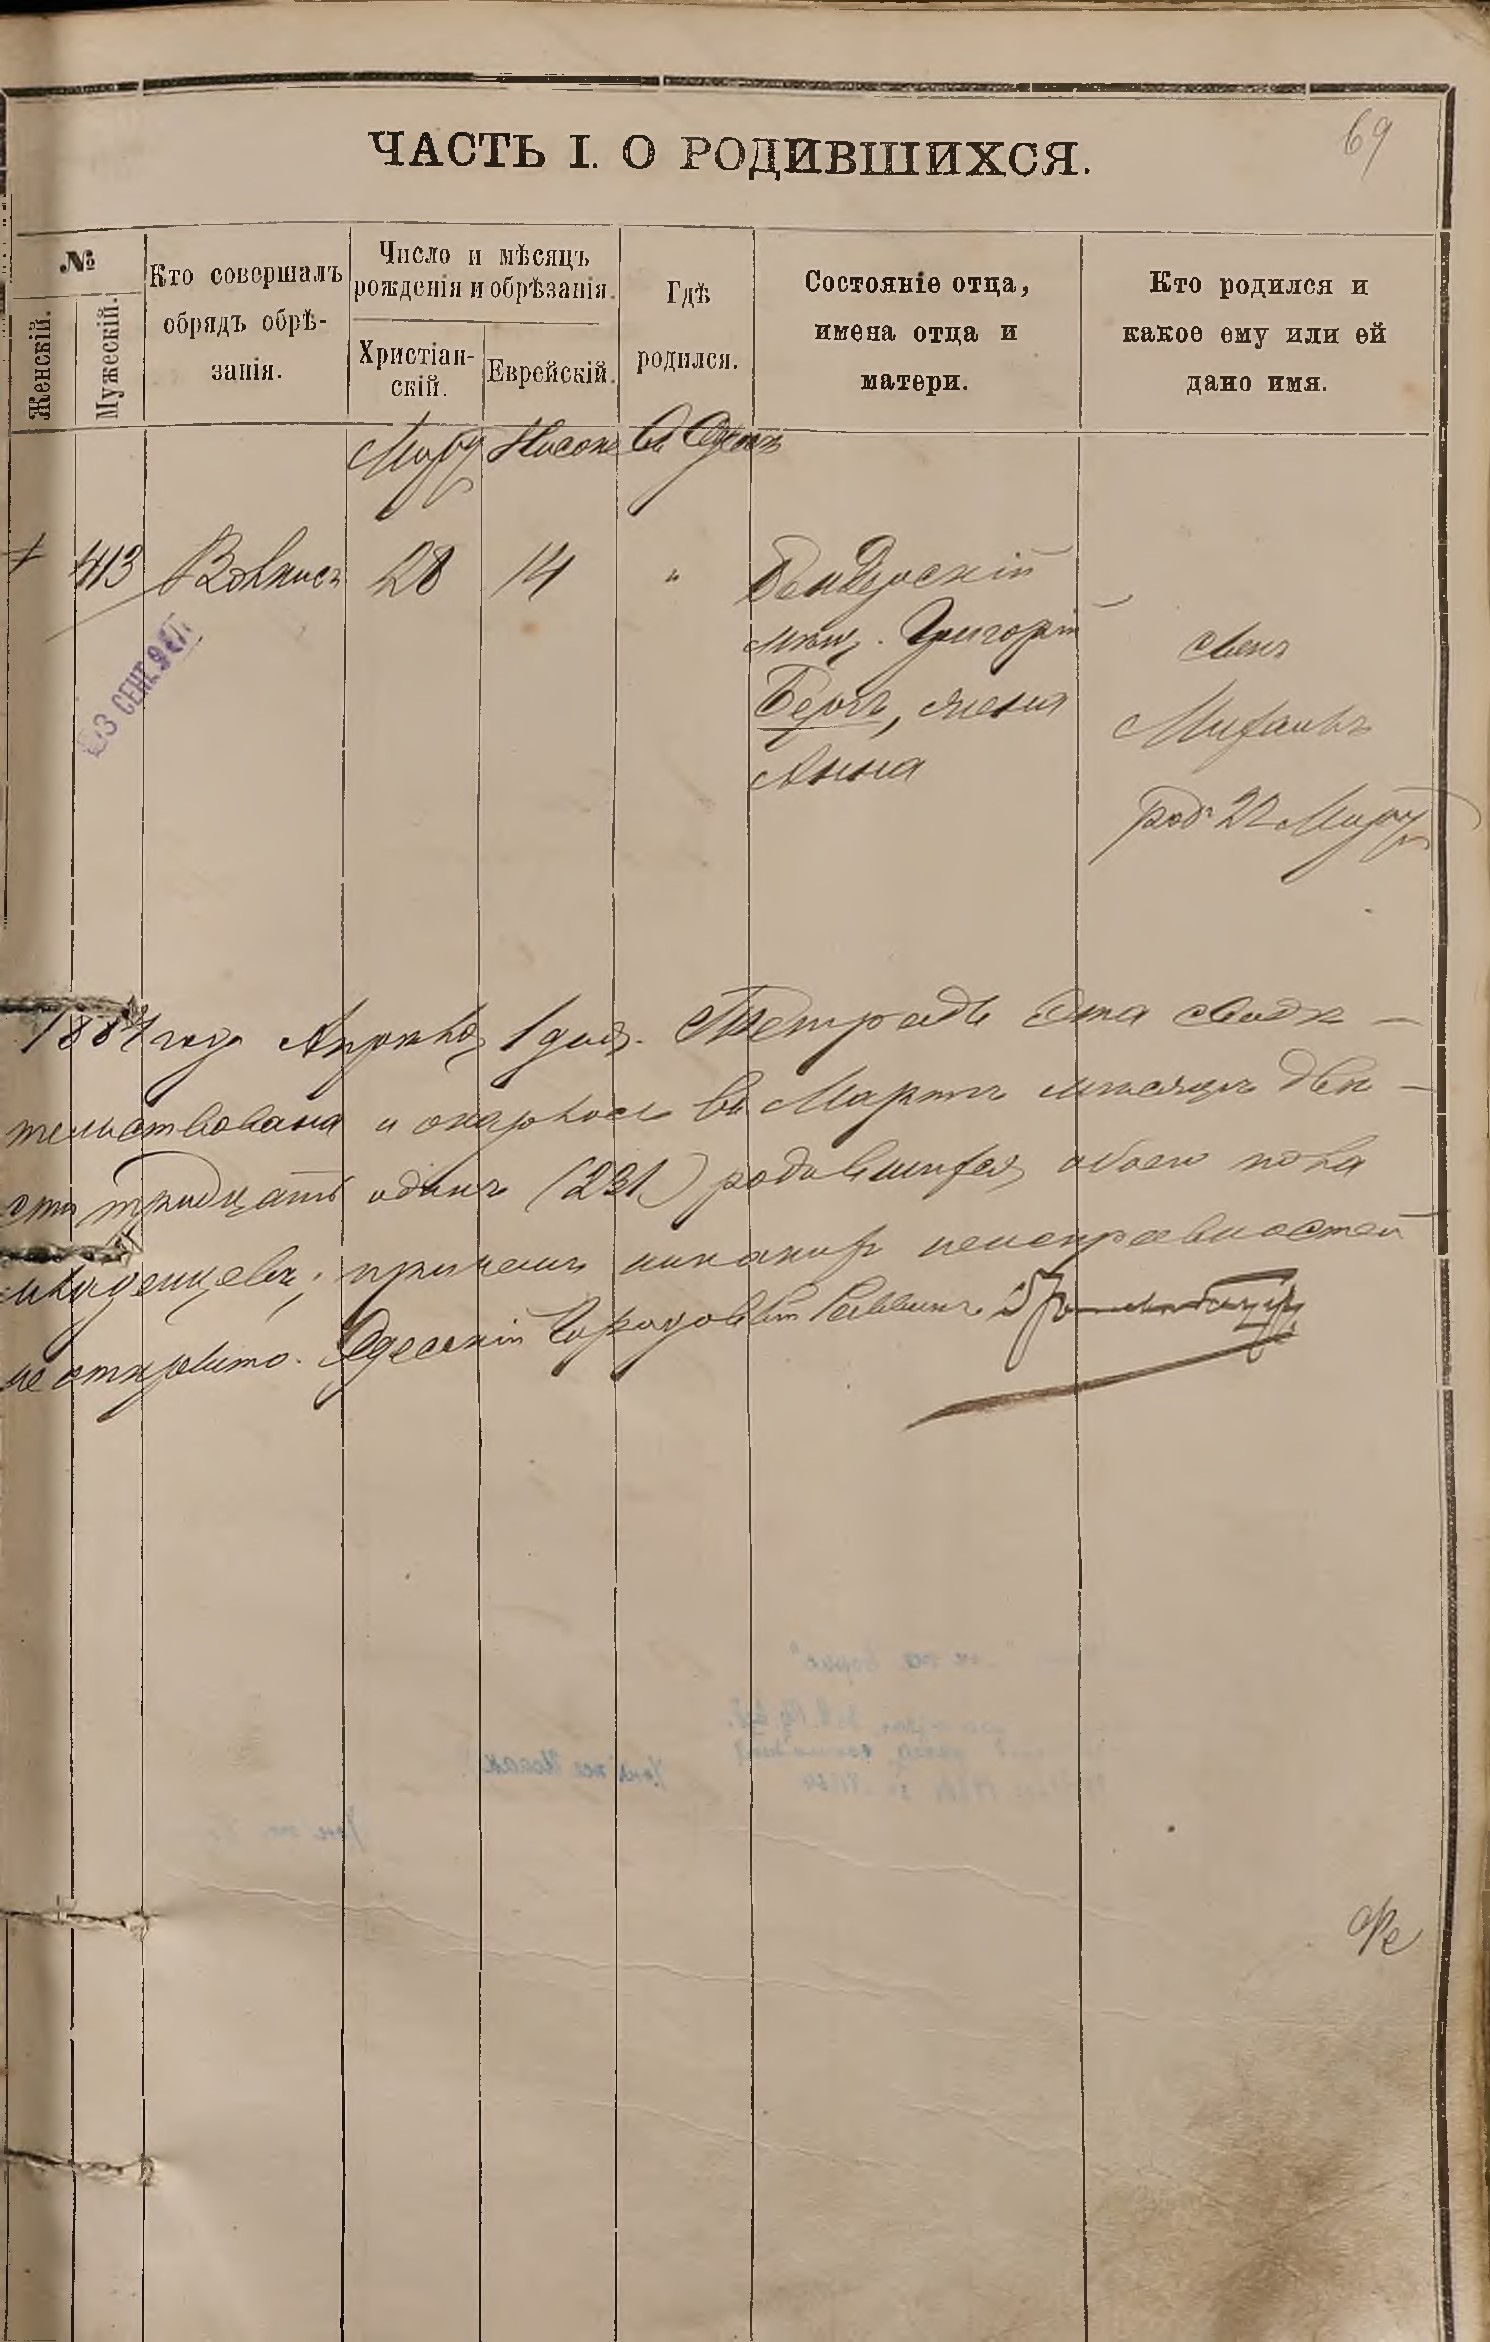 69
ЧАСТЬ I. О РОДИВШИХСЯ.
№
Женскій.
Мужескій.
Кто совершалъ
обрядъ обрѣ-
занія.
Число и мѣсяцъ
рожденія и обрѣзанія.
Христіан-
скій.
Еврейскій.
Гдѣ
родился.
Состояніе отца,
имена отца и
матери.
Кто родился и
какое ему или ей
дано имя.
Мартъ Нисонъ Въ Одессѣ
413 28 14 "
Бендерскій
мѣщ. Григорій
Бергъ, жена
Анна
сынъ
Михаилъ
род. 22 Марта
1884 года Апрѣля 1 дня. Тетрадь эта свидѣ-
тельствована и оказалось въ Мартѣ мѣсяцѣ двѣ-
сти тридцать одинъ (231) родившихся обоего пола
младенцевъ; причемъ никакихъ неисправностей
не открыто. Одесскій Городовой Раввинъ